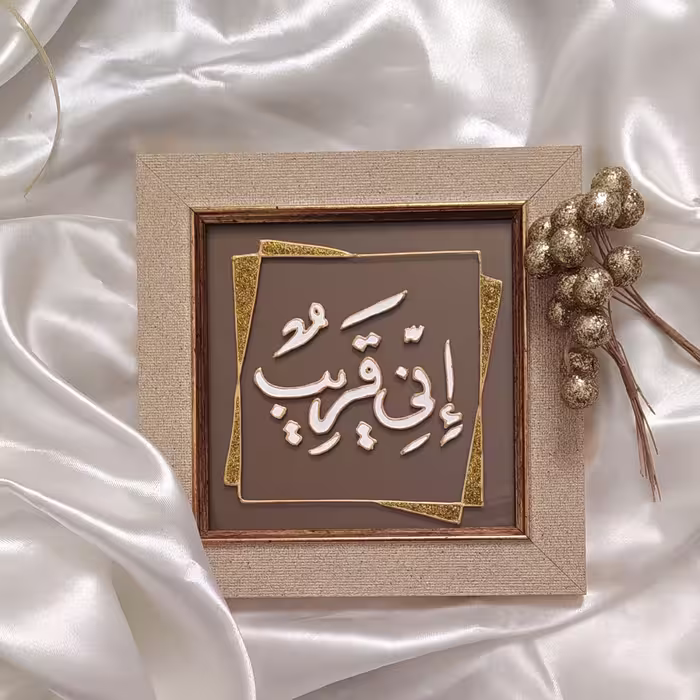 إِنِّي قَرِيبٌ